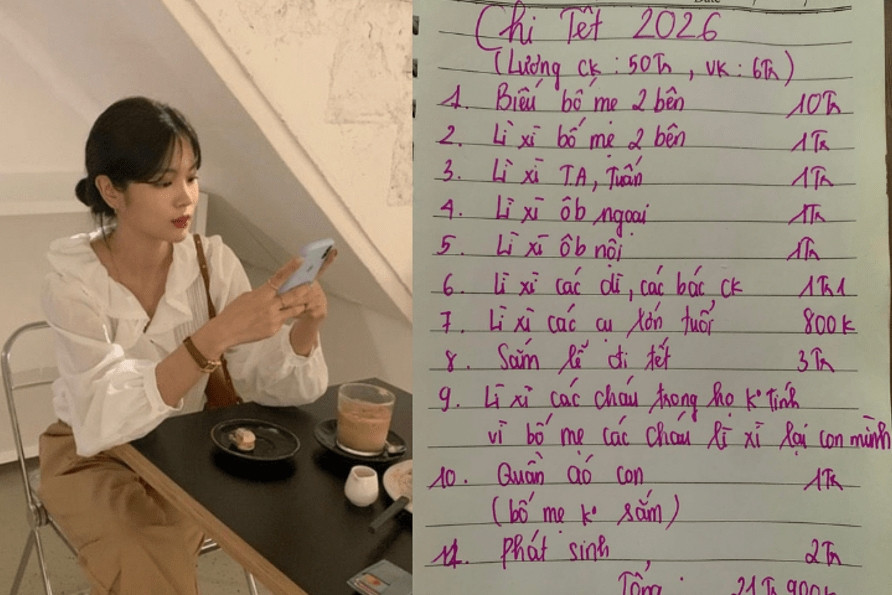 Date
Chi Tết 2026
(Lương CK : 50Tr , VK : 6Tr)
1. Biếu bố mẹ 2 bên 10Tr
2. Lì xì bố mẹ 2 bên 1Tr
3. Lì xì T.A, Tuấn 1Tr
4. Lì xì ôb ngoại 1Tr
5. Lì xì ôb nội 1Tr
6. Lì xì các dì, các bác ck 1Tr1
7. Lì xì các cụ lớn tuổi 800k
8. Sắm lễ đi tết 3Tr
9. Lì xì các cháu trong họ k° tính
vì bố mẹ các cháu lì xì lại con mình
10. Quần áo con 1Tr
(bố mẹ k° sắm)
11. Phát sinh 2Tr
Tổng : 21Tr900k